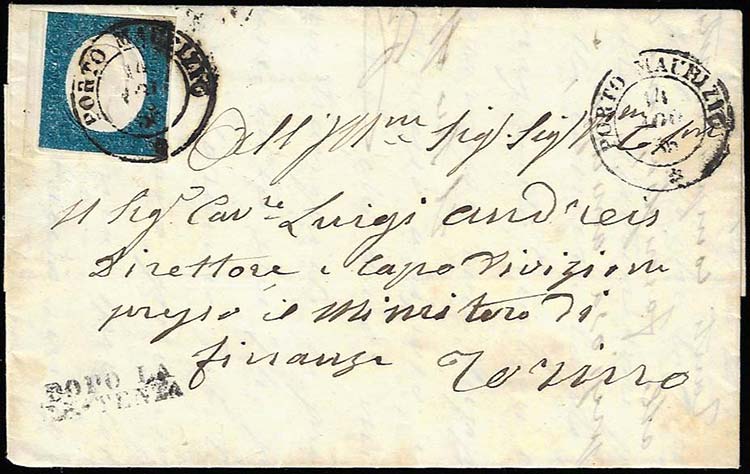 PORTO MAURIZIO
14
PORTO MAURIZIO
14
AGO
All Illmo Sigr Sigr
Il Sigr Cavre Luigi Andreis
Direttore e Capo Divizione
presso il Ministero di
finanze Torino
DOPO LA
PARTENZA